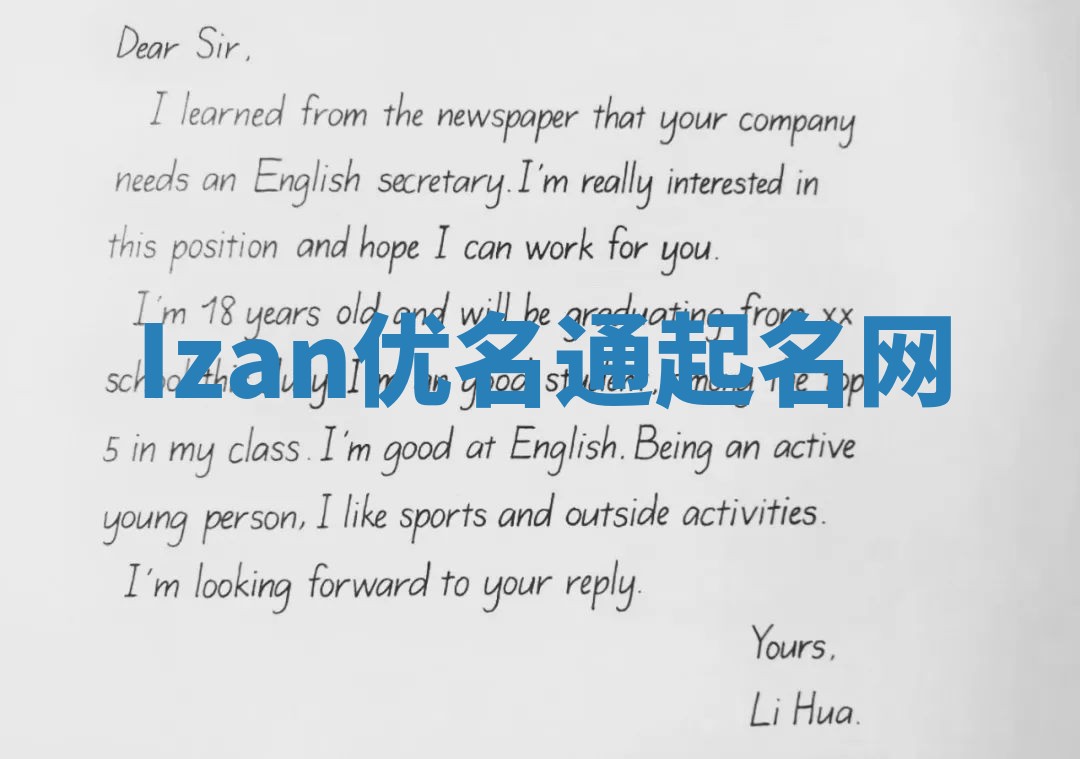 Dear Sir,
I learned from the newspaper that your company
needs an English secretary. I'm really interested in
this position and hope I can work for you.
I'm 18 years old and will be graduating from xx
Izan优名通起名网
school this July. I'm a good student, among the top
5 in my class. I'm good at English. Being an active
young person, I like sports and outside activities.
I'm looking forward to your reply.
Yours,
Li Hua.